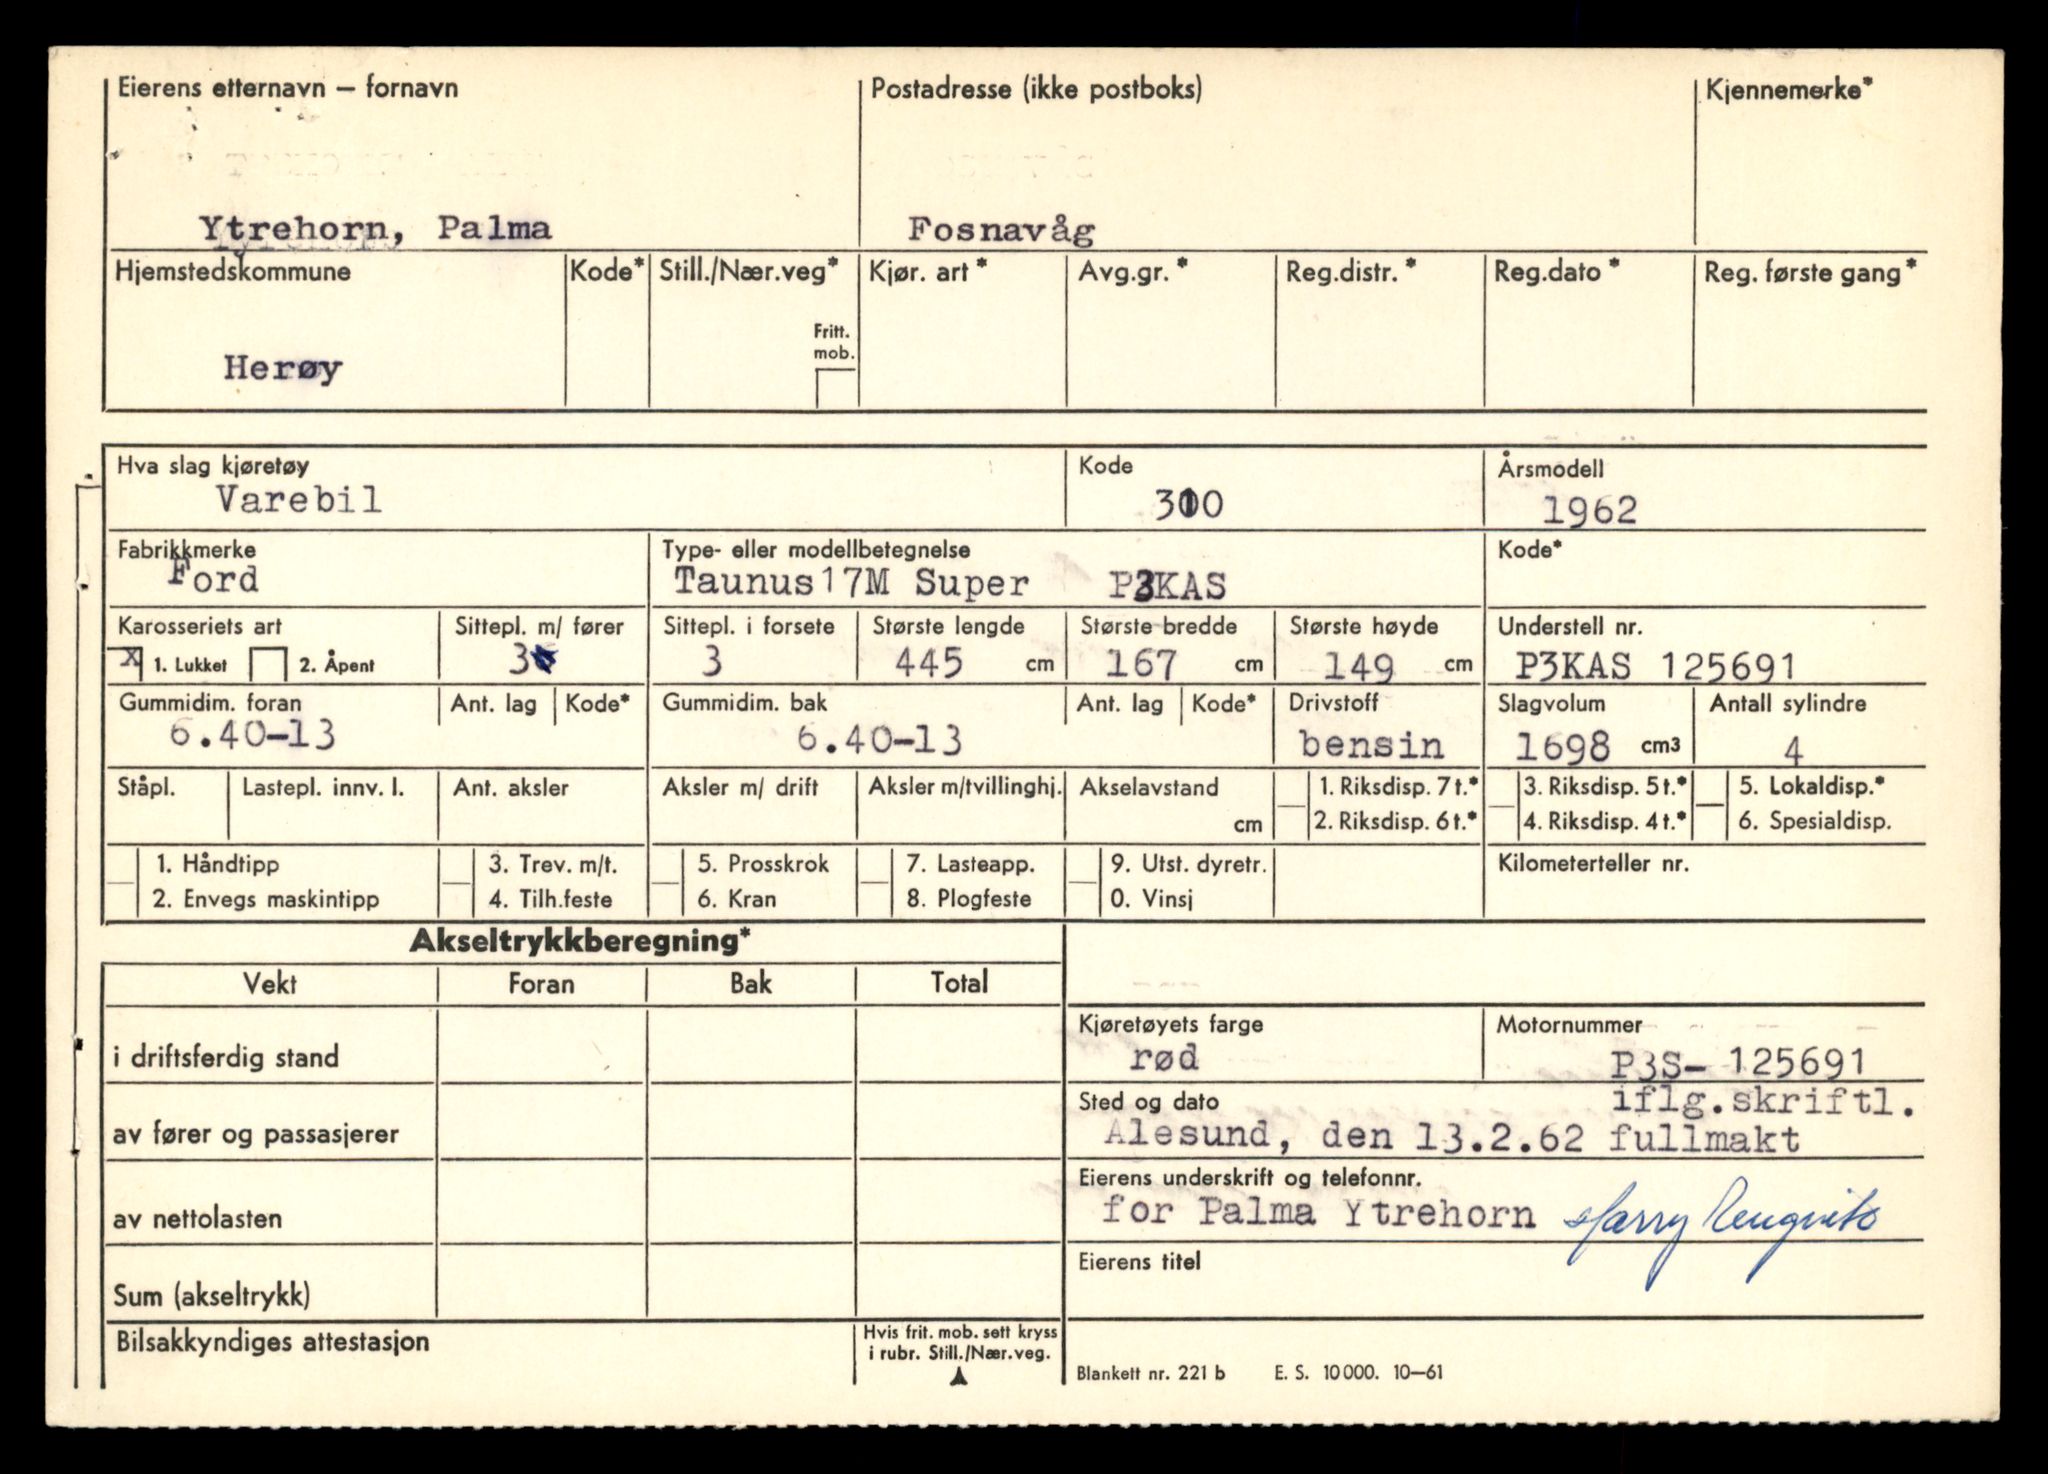 Eierens etternavn – fornavn Postadresse (ikke postboks) Kjennemerke*
Ytrehorn, Palma Fosnavåg
Hjemstedskommune Kode* Still./Nær.veg* Kjør. art* Avg.gr.* Reg.distr.* Reg.dato* Reg. første gang*
Fritt.
mob.
Herøy
Hva slag kjøretøy Kode Årsmodell
Varebil 310 1962
Fabrikkmerke Type- eller modellbetegnelse Kode*
Ford Taunus 17M Super P3KAS
Karosseriets art Sittepl. m/ fører Sittepl. i forsete Største lengde Største bredde Største høyde Understell nr.
x 1. Lukket 2. Åpent 3 3 445 cm 167 cm 149 cm P3KAS 125691
Gummidim. foran Ant. lag Kode* Gummidim. bak Ant. lag Kode* Drivstoff Slagvolum Antall sylindre
6.40-13 6.40-13 bensin 1698 cm3 4
Ståpl. Lastepl. innv. l. Ant. aksler Aksler m/ drift Aksler m/tvillinghj. Akselavstand 1. Riksdisp. 7 t.* 3. Riksdisp. 5 t.* 5. Lokaldisp.*
cm 2. Riksdisp. 6 t.* 4. Riksdisp. 4 t.* 6. Spesialdisp.
1. Håndtipp 3. Trev. m/t. 5. Prosskrok 7. Lasteapp. 9. Utst. dyretr. Kilometerteller nr.
2. Envegs maskintipp 4. Tilh.feste 6. Kran 8. Plogfeste 0. Vinsj
Akseltrykkberegning*
Vekt Foran Bak Total
Kjøretøyets farge Motornummer
i driftsferdig stand rød P3S- 125691
Sted og dato iflg.skriftl.
av fører og passasjerer Alesund, den 13.2.62 fullmakt
Eierens underskrift og telefonnr.
av nettolasten for Palma Ytrehorn Harry
Eierens titel
Sum (akseltrykk)
Bilsakkyndiges attestasjon Hvis frit. mob. sett kryss
i rubr. Still./Nær.veg.
Blankett nr. 221 b E. S. 10 000. 10–61